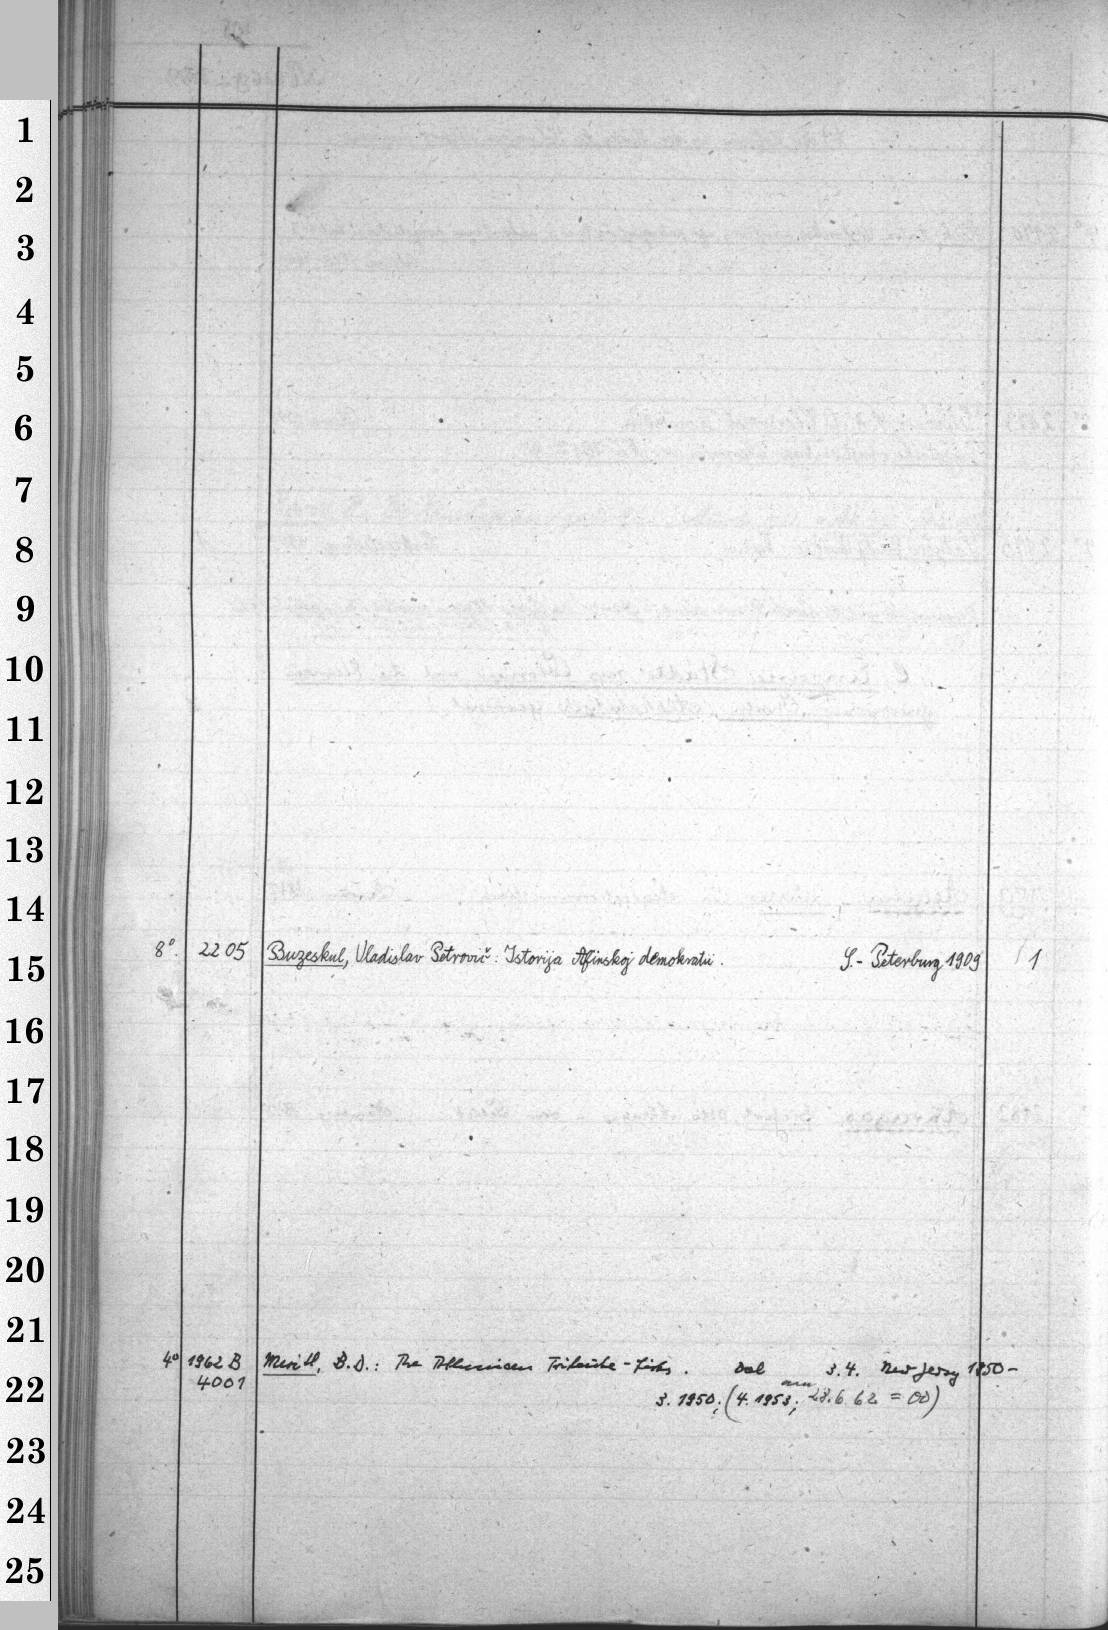 1
2
3
4
5
6
7
8
9
10
11
12
13
14
8° 2205 Buzeskul, Vladislav Petrovič: Istorija Afinskoj demokratii. S.-Peterburg 1909 1
15
16
17
18
19
20
21
4° 1962 B Meritt, B.D.: The Athenian Tribute-Lists. Vol 3.4. New Jersey 1950-
4001
22
3. 1950; (4. 1953; 28.6.62 = 00)
23
24
25